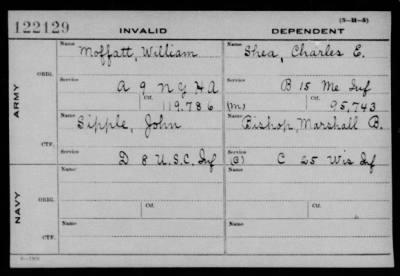 (3-M-8)
122129 INVALID DEPENDENT
Name Name
Moffatt, William Shea, Charles E.
ORIG.
Service Service
A 9 N Y H A B 15 Me Inf
Ctf. (m) Ctf.
119.786 95,743
ARMY
Name Name
Sipple, John Bishop, Marshall B.
CTF.
Service Service
D 8 U.S.C. Inf (G) C 25 Wis Inf
Name Name
ORIG.
Service Service
Ctf. Ctf.
NAVY
Name Name
CTF.
Service Service